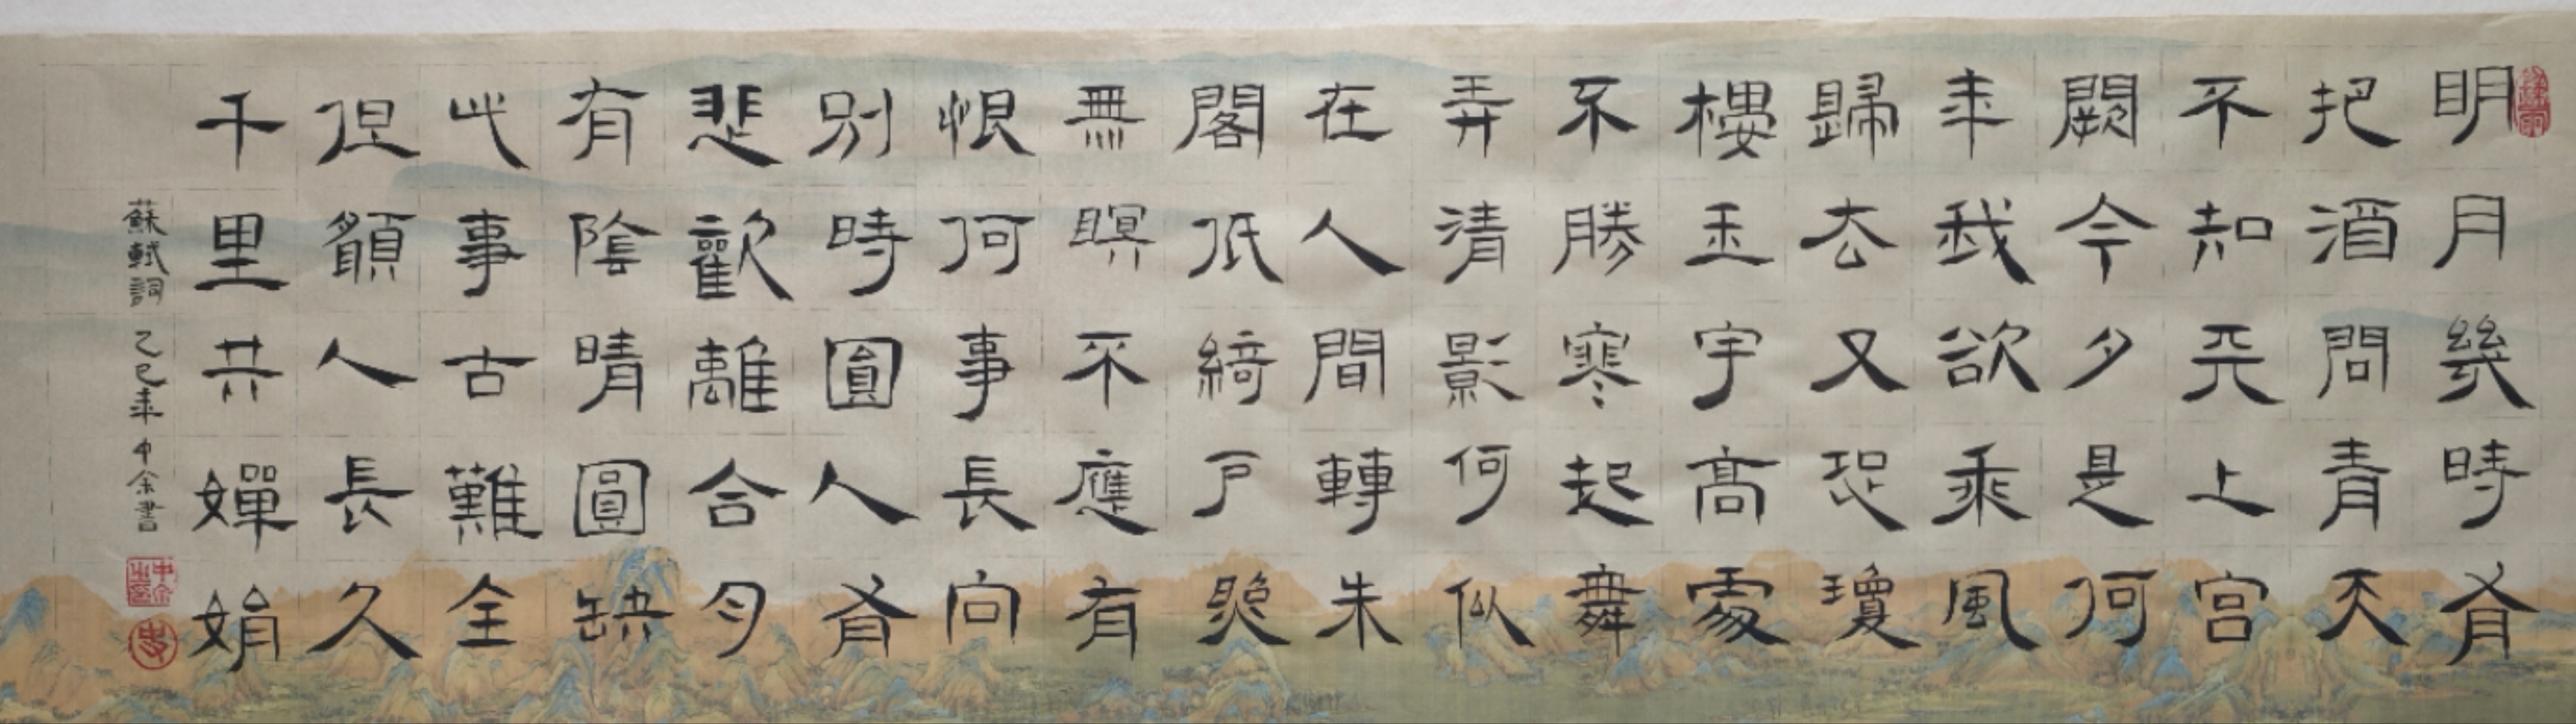 明月幾時有
把酒問青天
不知天上宮
闕今夕是何
年我欲乘風
歸去又恐瓊
樓玉宇高處
不勝寒起舞
弄清影何似
在人間轉朱
閣低綺戶照
無瞑不應有
恨何事長向
別時圓人有
悲歡離合月
有陰晴圓缺
此事古難全
但願人長久
千里共嬋娟
蘇軾詞 乙巳年 中余書